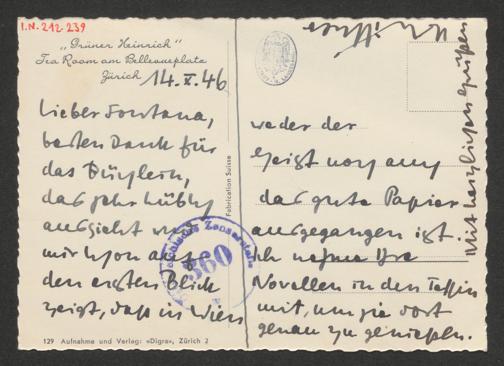 I.N. 212.239
„Grüner Heinrich"
Tea Room am Bellevueplatz
Zürich
14. V. 46
Lieber Fontana,
besten Dank für
das Büchlein,
das sehr hübsch
aussieht und
mir schon auf
den ersten Blick
zeigt, daß in Wien
weder der
Geist noch
das gute Papier
ausgegangen ist.
Ich nehme Ihre
Novellen in den Tessin
mit, um sie dort
genau zu genießen.
Mit herzlichen Grüßen
Fabrication Suisse
Zensurstelle
360
129 Aufnahme und Verlag: «Digra», Zürich 2